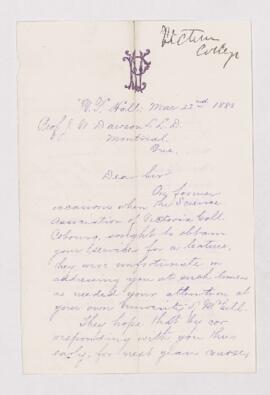 Victoria
College
"V. P." Hall, Mar 22nd 1883
Prof. J. W. Dawson L.L.D.
Montreal
Que.
Dear Sir
On former
occasions when the Science
Association of Victoria Coll.
Cobourg, sought to obtain
your services for a lecture,
they were unfortunate in
addressing you at such times
as needed your attention at
your own University, McGill.
They hope that by cor
responding with you thus
early, for next years course,